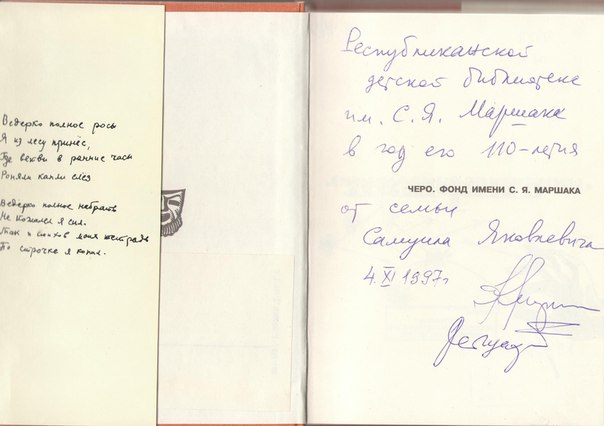 Ведерко полное росы
Я из лесу принес,
Где ветви в ранние часы
Роняли капли слез
Ведерко полное набрать
Не пожалел я сил.
Так и стихов моих тетрадь
По строчке я копил.
Республиканской
детской библиотеке
им. С. Я. Маршака
в год его 110-летия
ЧЕРО. ФОНД ИМЕНИ С. Я. МАРШАКА
от семьи
Самуила Яковлевича
4.XI 1997г